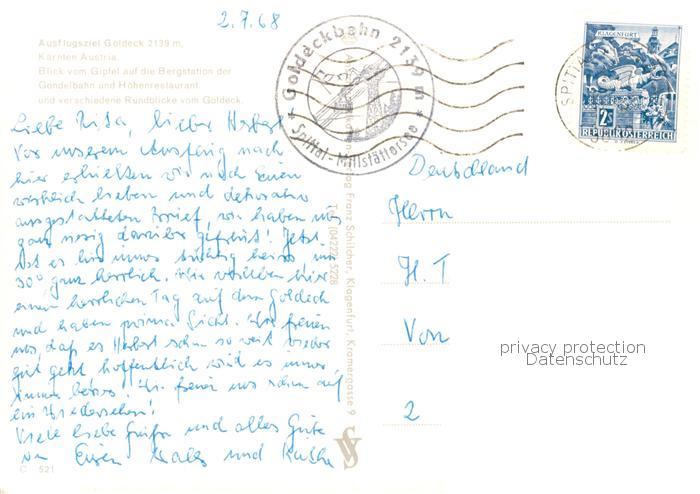 2.7.68
Ausflugsziel Goldeck 2139 m,
Kärnten Austria.
Blick vom Gipfel auf die Bergstation der
Gondelbahn und Höhenrestaurant
und verschiedene Rundblicke vom Goldeck.
Liebe Rita, lieber Herbst
Vor unserem Ausflug nach
hier erhielten wir noch Euren
lieben und
ausgestatteten Brief, wir haben uns
ganz riesig darüber gefreut! Jetzt
ist es hier immer tüchtig heiss um
30° ganz herrlich. Wir verleben hier
einen herrlichen Tag auf dem Goldeck
und haben prima Sicht. Wir freuen
uns, daß es Herbst schon so weit wieder
gut geht hoffentlich wird es immer,
immer besser. Wir freuen uns schon auf
ein Wiedersehen!
Viele liebe Grüße und alles Gute
von Euren und
C 521
Franz Schilcher, Klagenfurt, Kramergasse 9
Goldeckbahn 2139 m
Spittal-Millstättersee
KLAGENFURT
2 S
REPUBLIK ÖSTERREICH
SPITTAL
Deutschland
Herrn
H. T
Von
2
privacy protection
Datenschutz